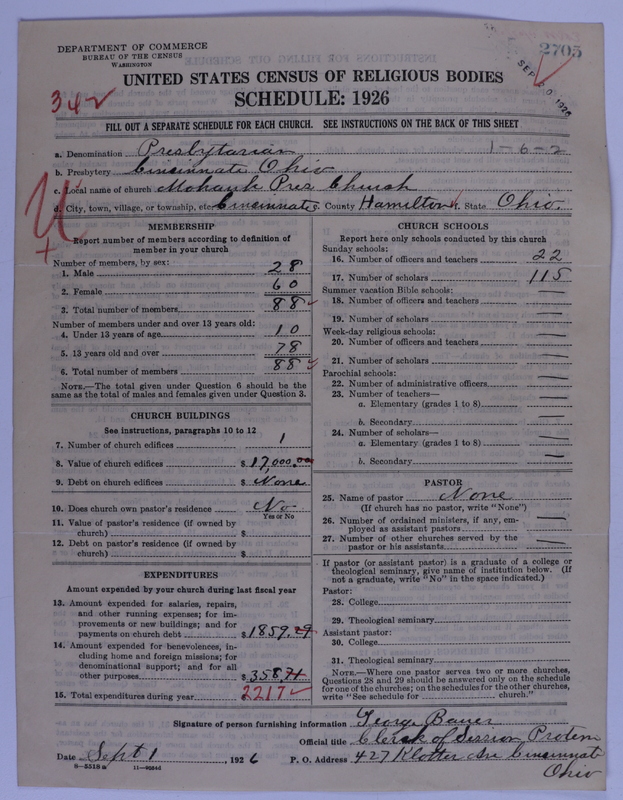 DEPARTMENT OF COMMERCE
BUREAU OF THE CENSUS
WASHINGTON
2705
SEP 20 1926
UNITED STATES CENSUS OF RELIGIOUS BODIES
342
SCHEDULE: 1926
FILL OUT A SEPARATE SCHEDULE FOR EACH CHURCH. SEE INSTRUCTIONS ON THE BACK OF THIS SHEET
a. Denomination Presbytarian 1-6-2
b. Presbytery Cincinnati Ohio
c. Local name of church Mohawk Pres Church
d. City, town, village, or township, etc. Cincinnati e. County Hamilton f. State Ohio.
U
+
MEMBERSHIP
Report number of members according to definition of
member in your church
Number of members, by sex:
1. Male 28
2. Female 60
3. Total number of members 88
Number of members under and over 13 years old:
4. Under 13 years of age 10
5. 13 years old and over 78
6. Total number of members 88
NOTE.—The total given under Question 6 should be the
same as the total of males and females given under Question 3.
CHURCH BUILDINGS
See instructions, paragraphs 10 to 12
7. Number of church edifices 1
8. Value of church edifices $ 17,000.00
9. Debt on church edifices $ None
10. Does church own pastor's residence No
Yes or No
11. Value of pastor's residence (if owned by
church) $
12. Debt on pastor's residence (if owned by
church) $
EXPENDITURES
Amount expended by your church during last fiscal year
13. Amount expended for salaries, repairs,
and other running expenses; for im-
provements or new buildings; and for
payments on church debt $ 1859.29
14. Amount expended for benevolences, in-
cluding home and foreign missions; for
denominational support; and for all
other purposes $ 358.71
15. Total expenditures during year 2217
CHURCH SCHOOLS
Report here only schools conducted by this church
Sunday schools:
16. Number of officers and teachers 22
17. Number of scholars 115
Summer vacation Bible schools:
18. Number of officers and teachers —
19. Number of scholars —
Week-day religious schools:
20. Number of officers and teachers —
21. Number of scholars —
Parochial schools:
22. Number of administrative officers —
23. Number of teachers—
a. Elementary (grades 1 to 8) —
b. Secondary —
24. Number of scholars—
a. Elementary (grades 1 to 8) —
b. Secondary —
PASTOR
25. Name of pastor None
(If church has no pastor, write "None")
26. Number of ordained ministers, if any, em-
ployed as assistant pastors —
27. Number of other churches served by the
pastor or his assistants —
If pastor (or assistant pastor) is a graduate of a college or
theological seminary, give name of institution below. (If
not a graduate, write "No" in the space indicated.)
Pastor:
28. College
29. Theological seminary
Assistant pastor:
30. College
31. Theological seminary
NOTE.—Where one pastor serves two or more churches,
Questions 28 and 29 should be answered only on the schedule
for one of the churches; on the schedules for the other churches,
write "See schedule for church."
Signature of person furnishing information George Bauer
Official title Clerk of Session Protem
Date Sept 1 1926 P. O. Address 427 Klotter Ave Cincinnati
Ohio
8-5518a 11-9564d